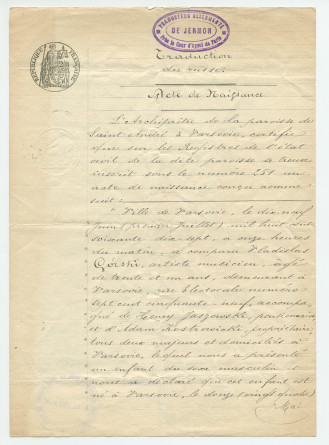 TRADUCTEUR ASSERMENTÉ
DE JERMON
Près la Cour d'Appel de Paris
RÉPUBLIQUE FRANÇAISE
Traduction
du russe.
Acte de Naissance
L'Archiprêtre de la paroisse de
Saint André à Varsovie, certifie
que sur les Registres de l'état
civil de la dite paroisse se trouve
inscrit sous le numéro 251 un
acte de naissance conçu comme
suit:
"Ville de Varsovie, le dix neuf
Juin (premier Juillet) mil huit cent
soixante dix sept, à onze heures
du matin, a comparu Vladislas
Górski, artiste musicien, âgé
de trente et un ans, demeurant à
Varsovie, rue Electorale numéro
sept cent cinquante-neuf, accompa-
gné de Henry
et d'Adam propriétaire,
tous deux majeurs et domiciliés à
Varsovie, lequel nous a présenté
un enfant du sexe masculin et
nous a déclaré que cet enfant est
né à Varsovie, le douze (vingt quatre)
Mai